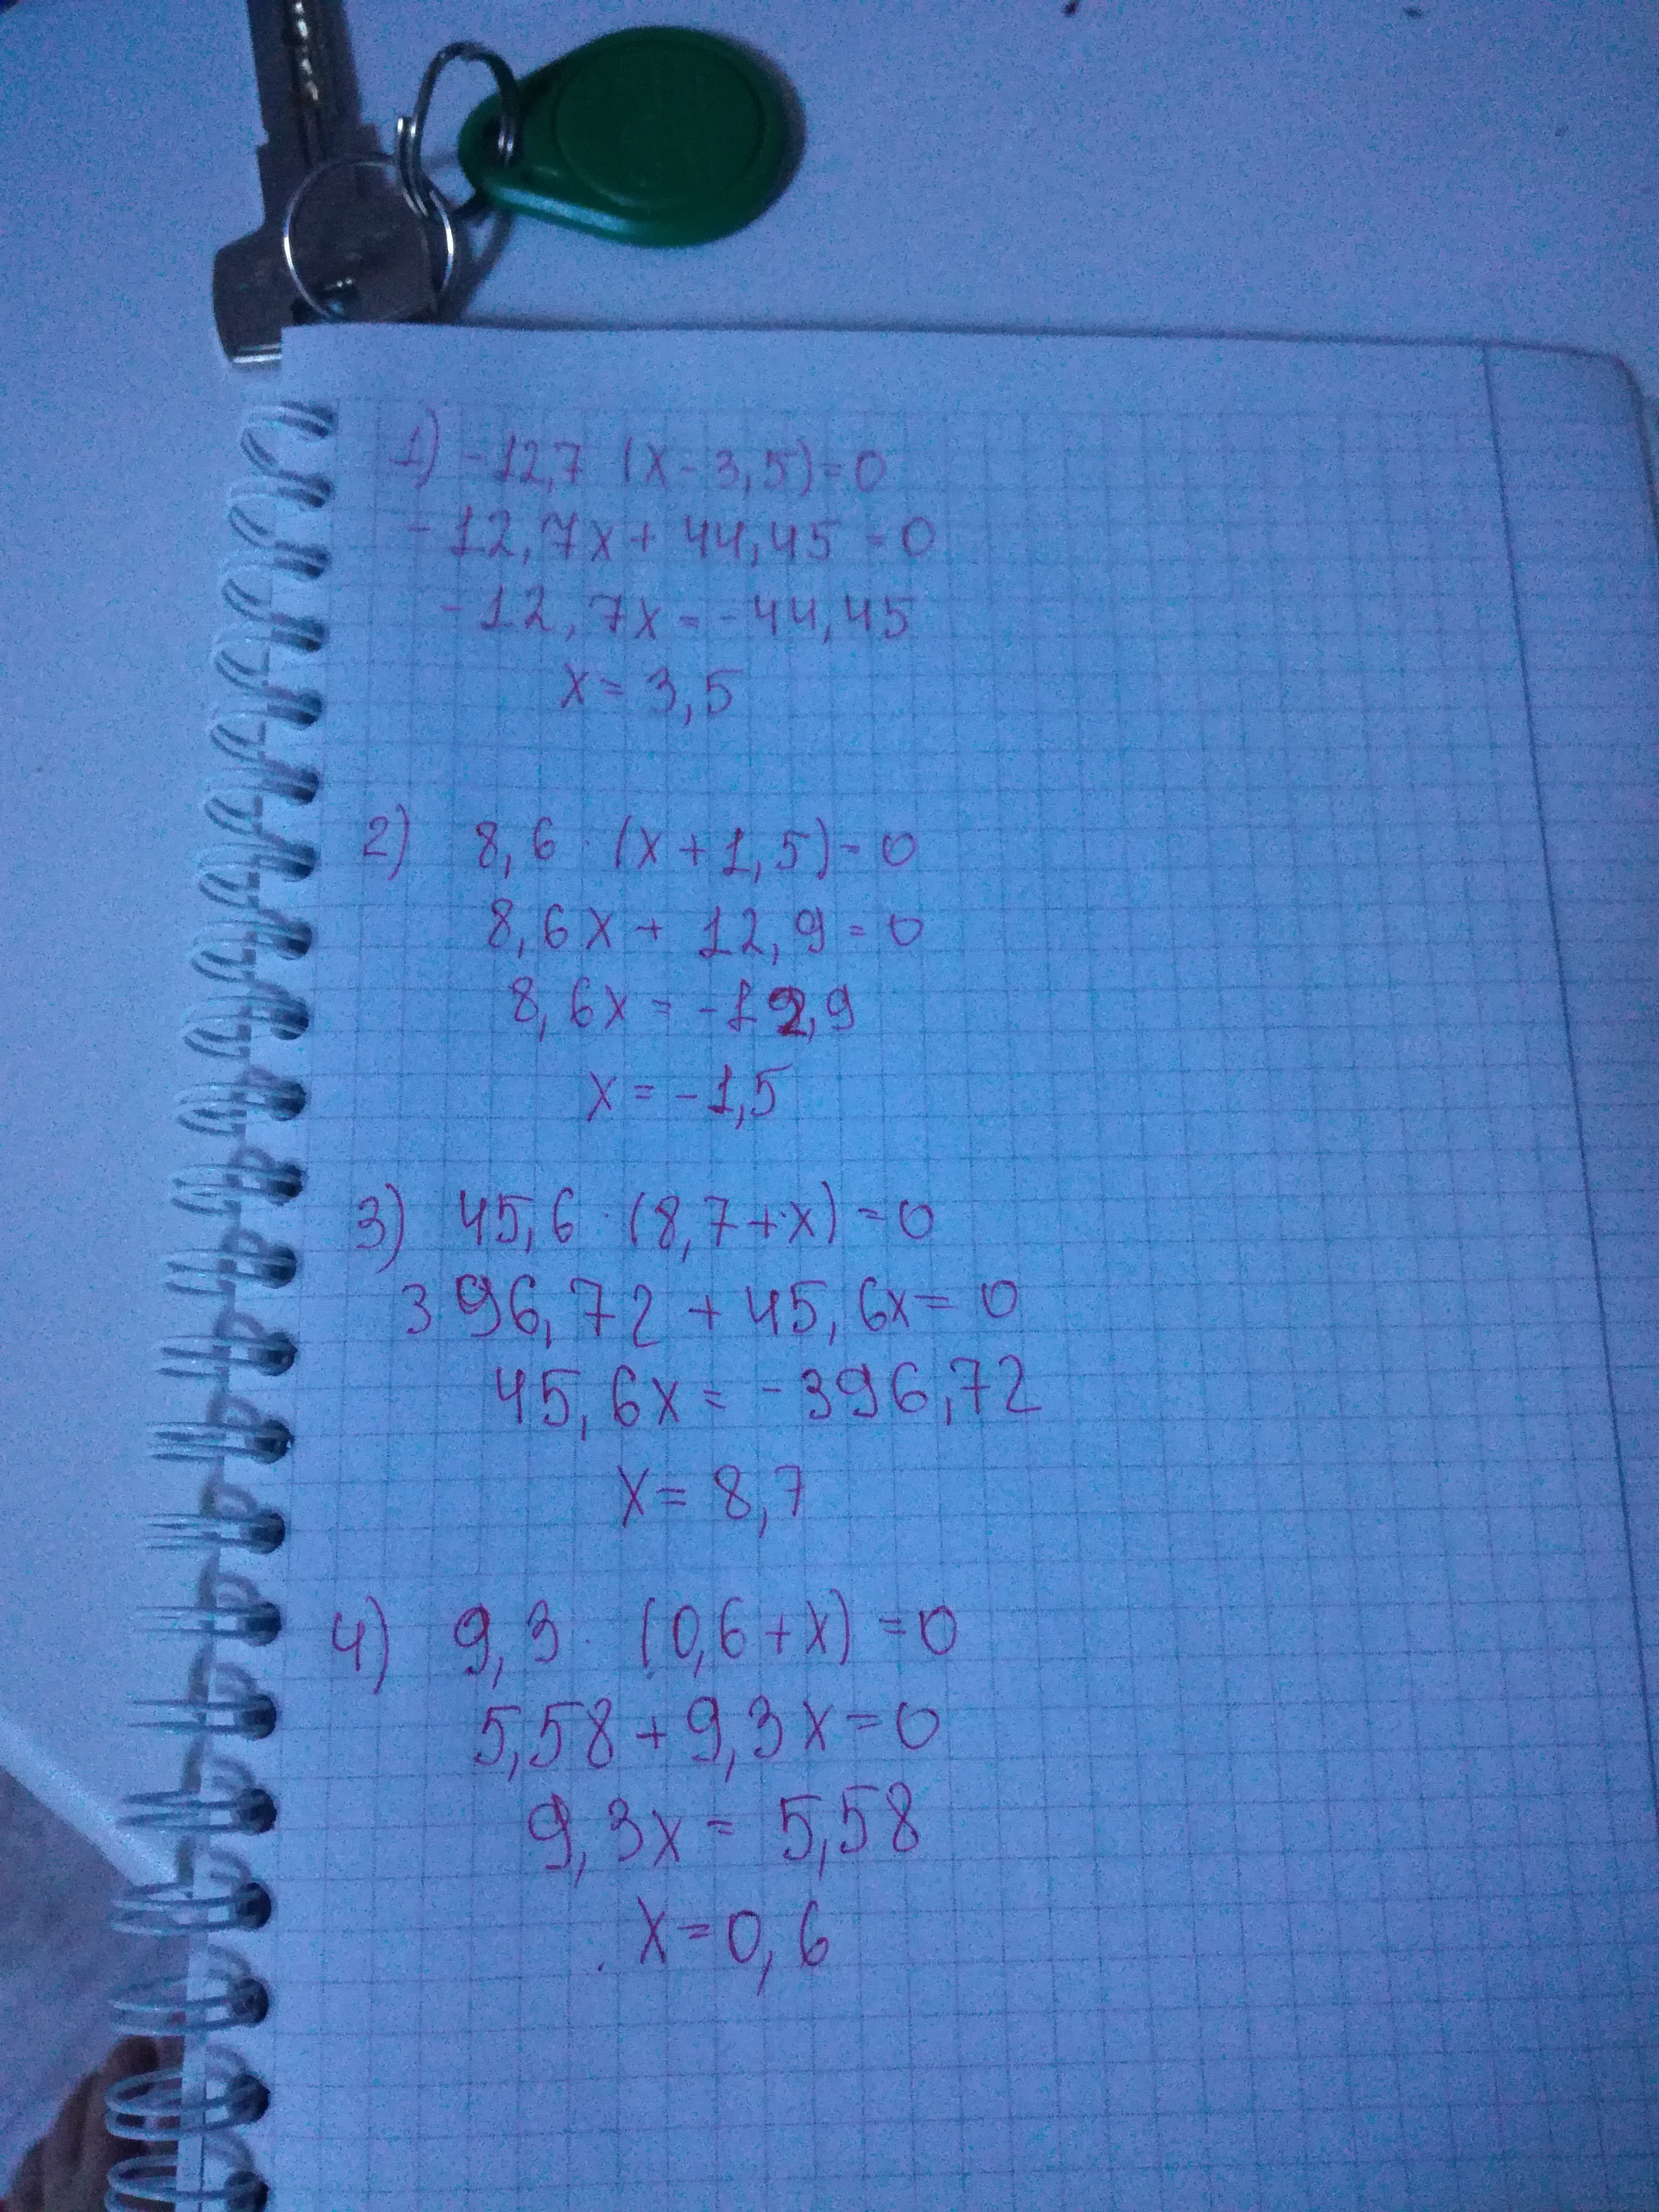 1) -12,7 (x-3,5)=0
-12,7x+44,45=0
-12,7x=-44,45
x=3,5
2) 8,6·(x+1,5)=0
8,6x+12,9=0
8,6x=-12,9
x=-1,5
3) 45,6·(8,7+x)=0
396,72+45,6x=0
45,6x=-396,72
x=8,7
4) 9,3·(0,6+x)=0
5,58+9,3x=0
9,3x=5,58
x=0,6